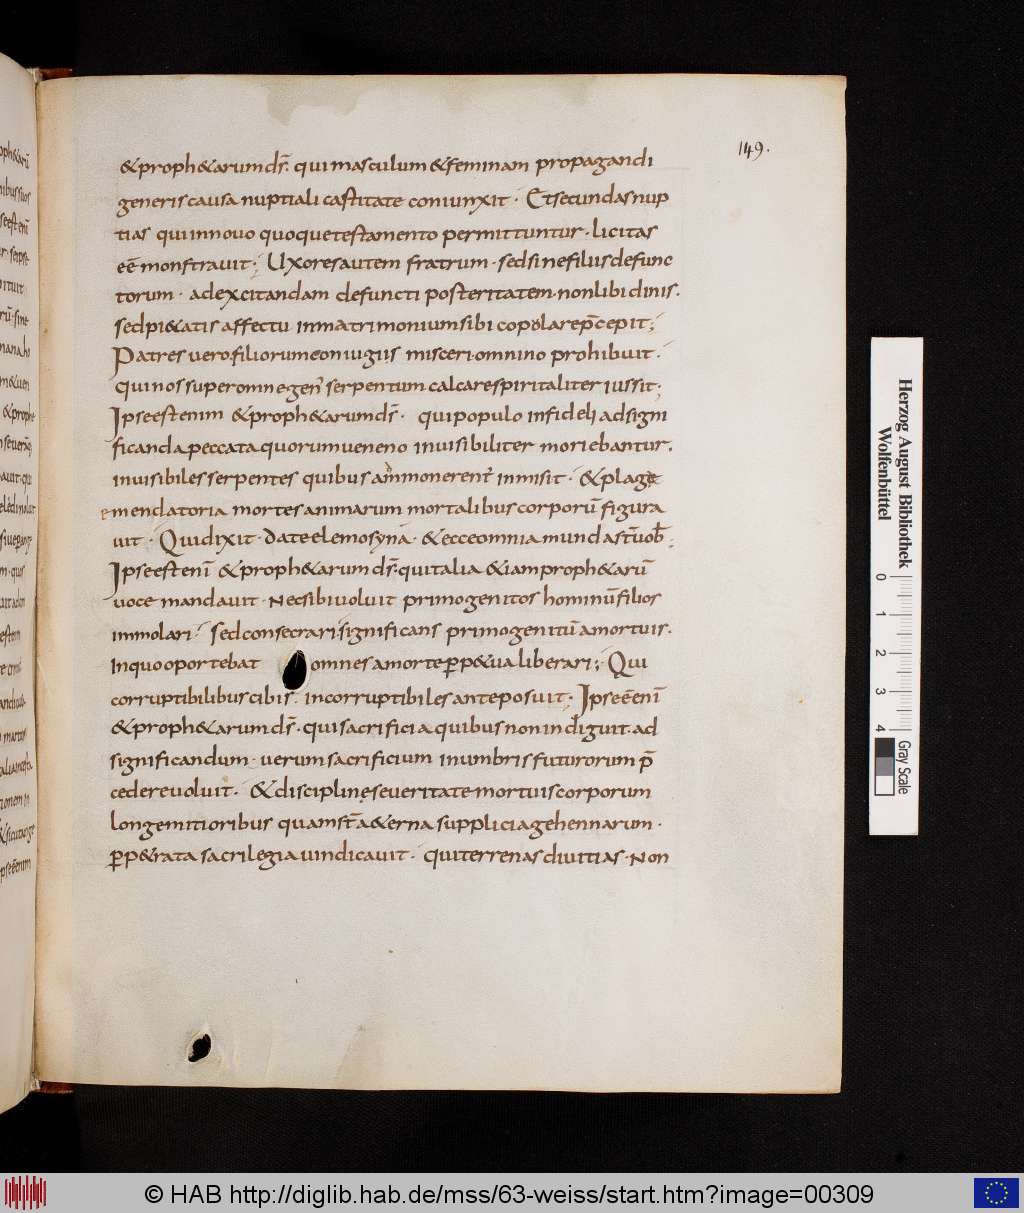 149.
& proph&arum d̄s. qui masculum & feminam propagandi
generis causa nuptiali castitate coniunxit · Et secundas nup
tias qui in nouo quoque testamento permittuntur · licitas
eē monstrauit ; Uxores autem fratrum · sed sine filiis defunc
torum · ad excitandam defuncti posteritatem · non libidinis ·
sed pi&atis affectu in matrimonium sibi copulare p̄cepit ;
Patres uero filiorum coniugiis misceri · omnino prohibuit ·
qui nos super omne gen' serpentum calcare spiritaliter iussit ;
Ipse est enim & proph&arum d̄s · qui populo infideli ad signi
ficanda peccata quorum ueneno inuisibiliter moriebantur ·
inuisibiles serpentes quibus ammonerent' inmisit · & plage
emendatoria mortes animarum mortalibus corporū figura
uit · Qui dixit · date elemosyna · & ecce omnia munda st̄ uob̄ ;
Ipse est enī & proph&arum d̄s · qui talia & iam proph&arū
uoce mandauit · Nec sibi uoluit primogenitos hominū filios
immolari · sed consecrari significans primogenitū a mortuis ·
In quo oportebat omnes a morte p̄p&ua liberari ; Qui
corruptibilibus cibis · incorruptibiles anteposuit · Ipse ē enī
& proph&arum d̄s · qui sacrificia quibus non indiguit · ad
significandum · uerum sacrificium in umbris futurorum p̄
cedere uoluit · & discipline seueritate mortuis corporum
longe mitioribus quam st̄ a&erna supplicia gehennarum ·
p̄p&rata sacrilegia uindicauit · qui terrenas diuitias · Non
Herzog August Bibliothek
Wolfenbüttel
0 1 2 3 4
Gray Scale
© HAB http://diglib.hab.de/mss/63-weiss/start.htm?image=00309